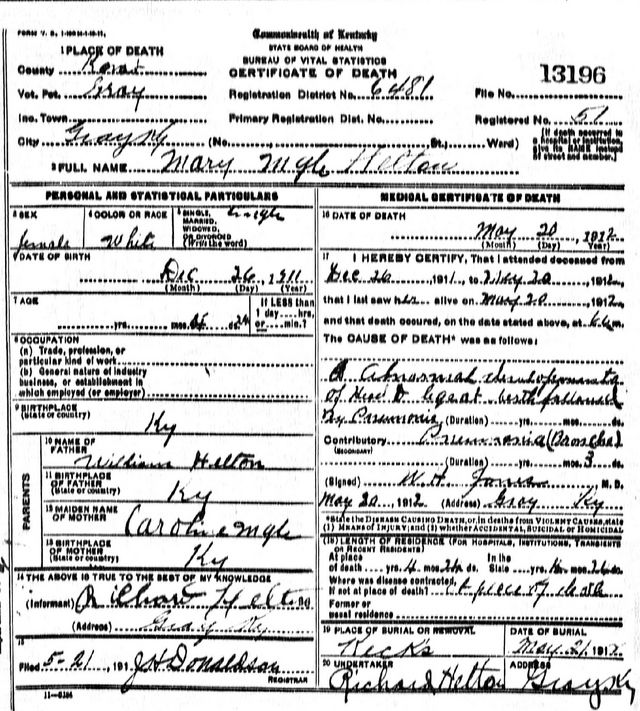 FORM V. S. 1
Commonwealth of Kentucky
STATE BOARD OF HEALTH
BUREAU OF VITAL STATISTICS
CERTIFICATE OF DEATH
1 PLACE OF DEATH
County Knox
Vot. Pct. Gray
Inc. Town
City Gray Ky (No. St.; Ward)
Registration District No. 6481
Primary Registration Dist. No.
13196
File No.
Registered No. 51
(If death occurred in a hospital or institution, give its NAME instead of street and number.)
2 FULL NAME Mary Helton
PERSONAL AND STATISTICAL PARTICULARS
3 SEX female
4 COLOR OR RACE White
5 SINGLE, MARRIED, WIDOWED, OR DIVORCED (Write the word) Single
6 DATE OF BIRTH
Dec 26, 1911
(Month) (Day) (Year)
7 AGE
yrs. mos. 24 ds.
If LESS than 1 day hrs. or min.?
8 OCCUPATION
(a) Trade, profession, or particular kind of work
(b) General nature of industry business, or establishment in which employed (or employer)
9 BIRTHPLACE
(State or country) Ky
PARENTS
10 NAME OF FATHER William Helton
11 BIRTHPLACE OF FATHER (State or country) Ky
12 MAIDEN NAME OF MOTHER Caroline
13 BIRTHPLACE OF MOTHER (State or country) Ky
14 THE ABOVE IS TRUE TO THE BEST OF MY KNOWLEDGE
(Informant) Richard Helton
(Address) Gray Ky
15
Filed 5-21, 191 J H Donaldson
REGISTRAR
MEDICAL CERTIFICATE OF DEATH
16 DATE OF DEATH
May 20, 1912
(Month) (Day) (Year)
17 I HEREBY CERTIFY, That I attended deceased from
Dec 26, 1911, to May 20, 1912,
that I last saw her alive on May 20, 1912,
and that death occured, on the date stated above, at 6 m.
The CAUSE OF DEATH* was as follows:
Abnormal
of at birth followed
by Pneumonia (Duration) yrs. mos. ds.
Contributory Pneumonia (Bronchial)
(SECONDARY)
(Duration) yrs. mos. 3 ds.
(Signed) W. H. Jones M. D.
May 20, 1912 (Address) Gray Ky
*State the DISEASE CAUSING DEATH, or, in deaths from VIOLENT CAUSES, state (1) MEANS OF INJURY; and (2) whether ACCIDENTAL, SUICIDAL or HOMICIDAL
(18) LENGTH OF RESIDENCE (FOR HOSPITALS, INSTITUTIONS, TRANSIENTS OR RECENT RESIDENTS)
At place of death yrs. 4 mos. 24 ds. In the State yrs. mos. ds.
Where was disease contracted, If not at place of death? At place of death
Former or usual residence
19 PLACE OF BURIAL OR REMOVAL
Kecks
DATE OF BURIAL
May 21, 1912
20 UNDERTAKER
Richard Helton
ADDRESS
Gray Ky